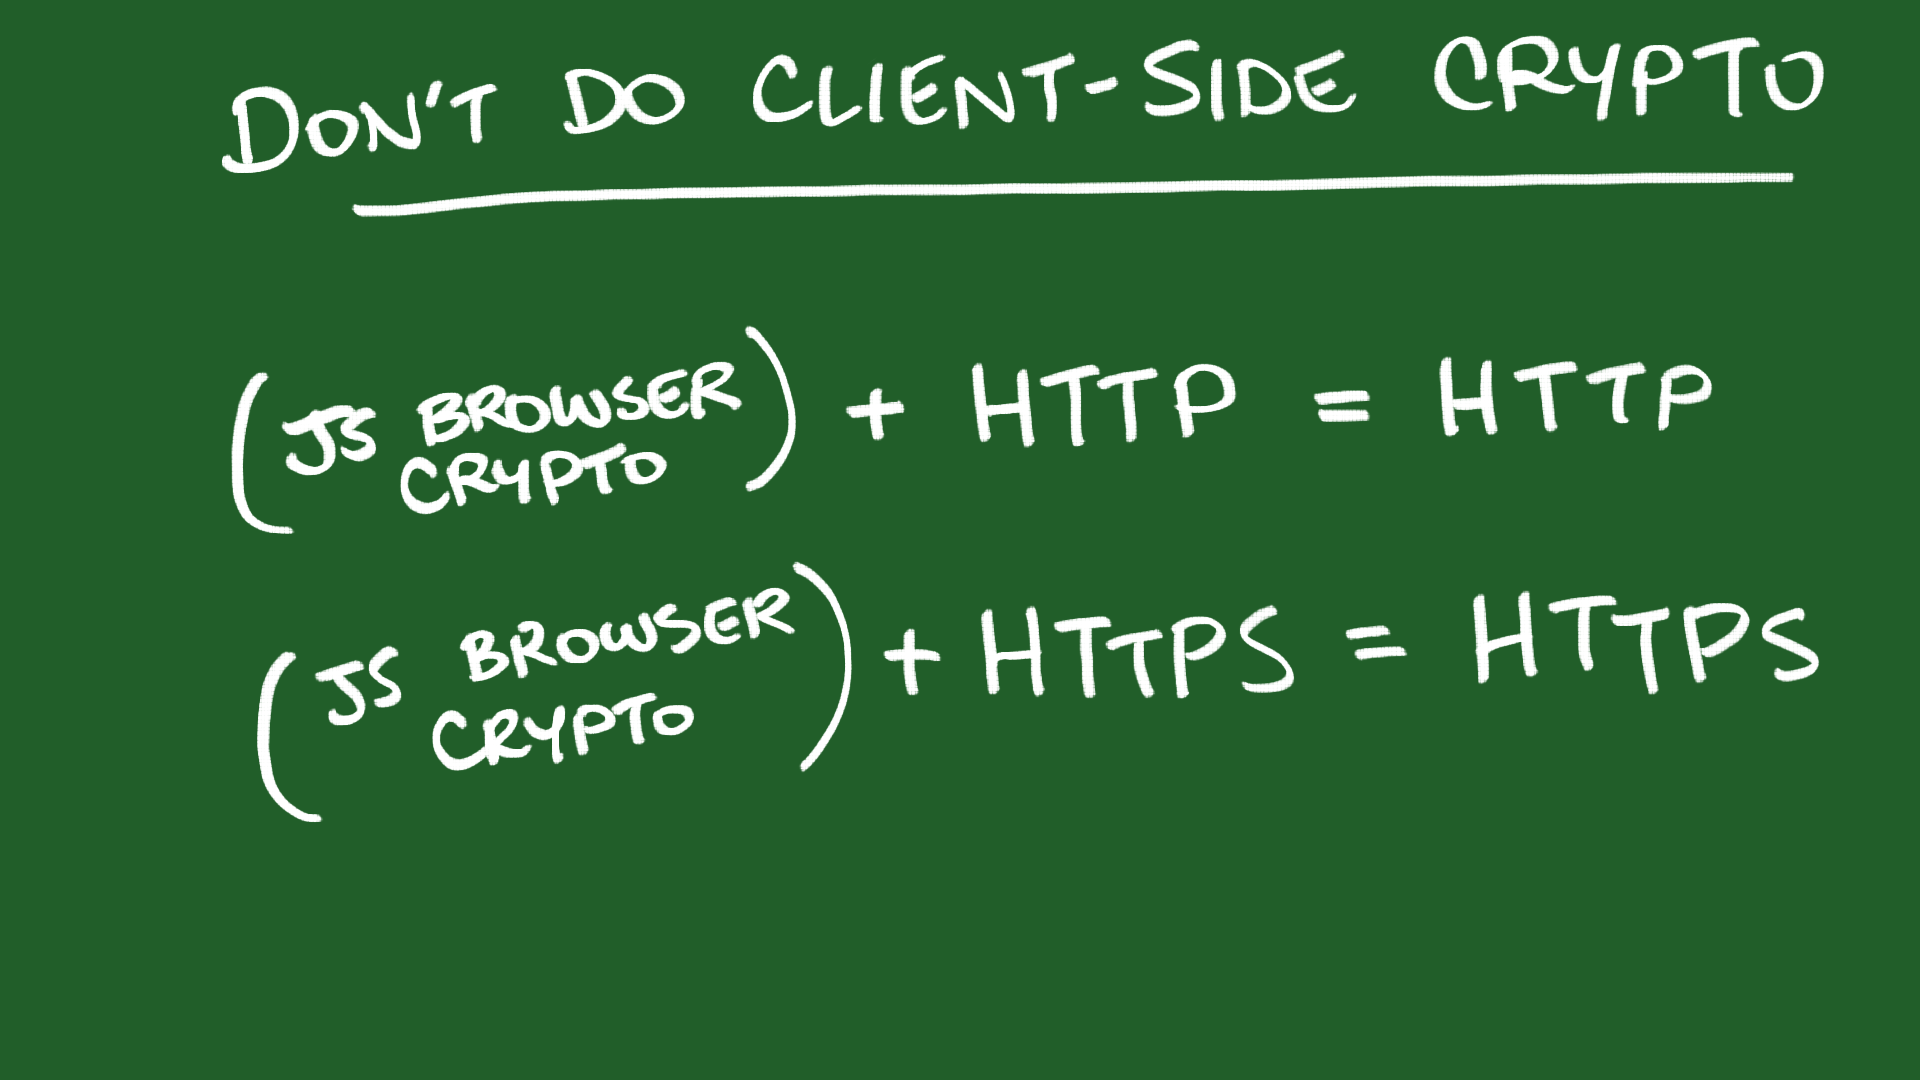 DON'T DO CLIENT-SIDE CRYPTO
(JS BROWSER CRYPTO) + HTTP = HTTP
(JS BROWSER CRYPTO) + HTTPS = HTTPS